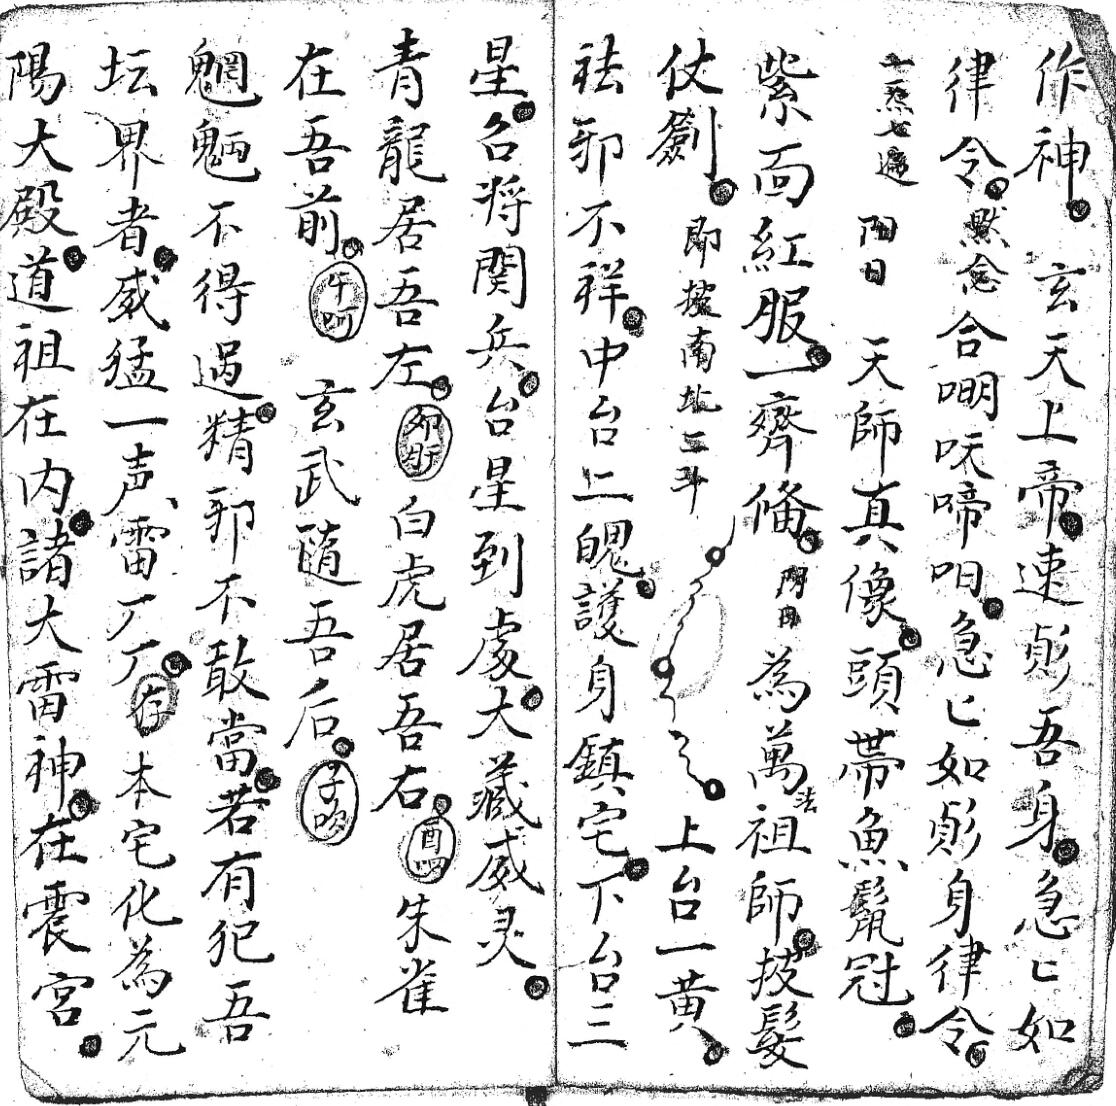 作神玄天上帝速剪吾身急匕如
律令默念合唎呋啼呾急匕如身律令
一炁七遍阳日天師真像頭帶魚鬚冠
紫面紅服一齊脩阴日為萬法祖師披髮
仗劍即擡南北二斗上台一黃
祛邪不祥中台二魄護身鎮宅下台三
星召将関兵台星到處大藏威灵
青龍居吾左卯吁白虎居吾右酉呬朱雀
在吾前午呵玄武隨吾后子吹
魍魎不得過精邪不敢當若有犯吾
坛界者威猛一声雷厂厂存本宅化為元
陽大殿道祖在内諸大雷神在震宮